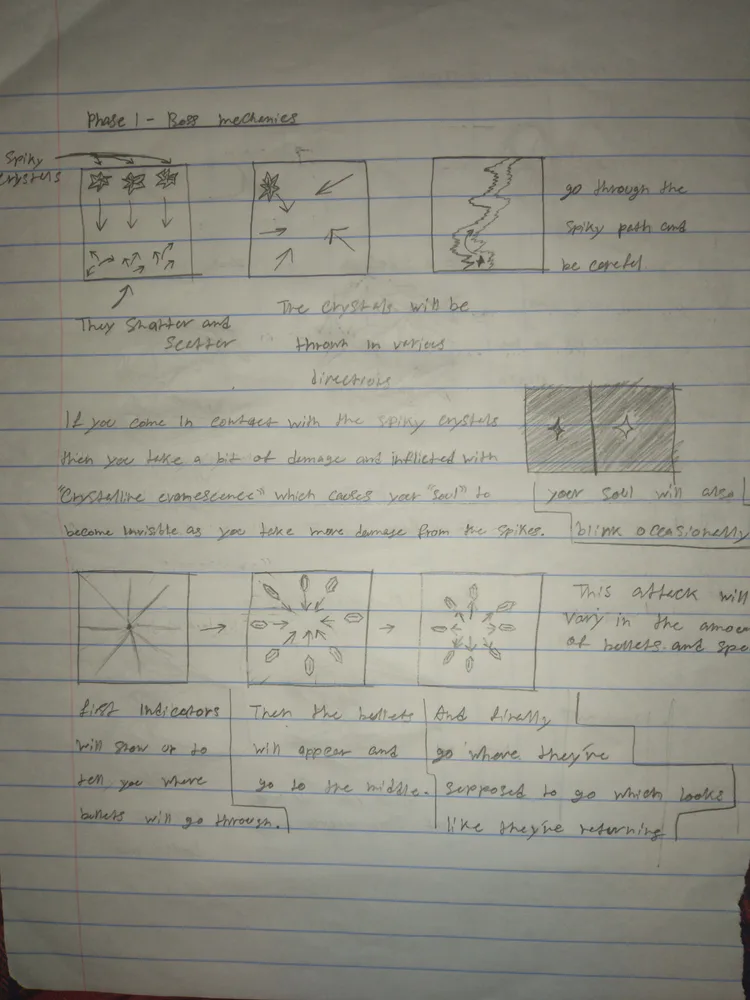 Phase 1 - Boss mechanics
Spiky
crystals
go through the
spiky path and
be careful
They shatter and
scatter
The crystals will be
thrown in various
directions
If you come in contact with the spiky crystals
then you take a bit of damage and inflicted with
"Crystalline evanescence" which causes your "soul" to
become invisible as you take more damage from the spikes.
your soul will also
blink occasionally
This attack will
vary in the amou
of bullets and spe
first indicators
will show up to
tell you where
bullets will go through.
Then the bullets
will appear and
go to the middle.
And finally
go where they're
supposed to go which looks
like they're returning